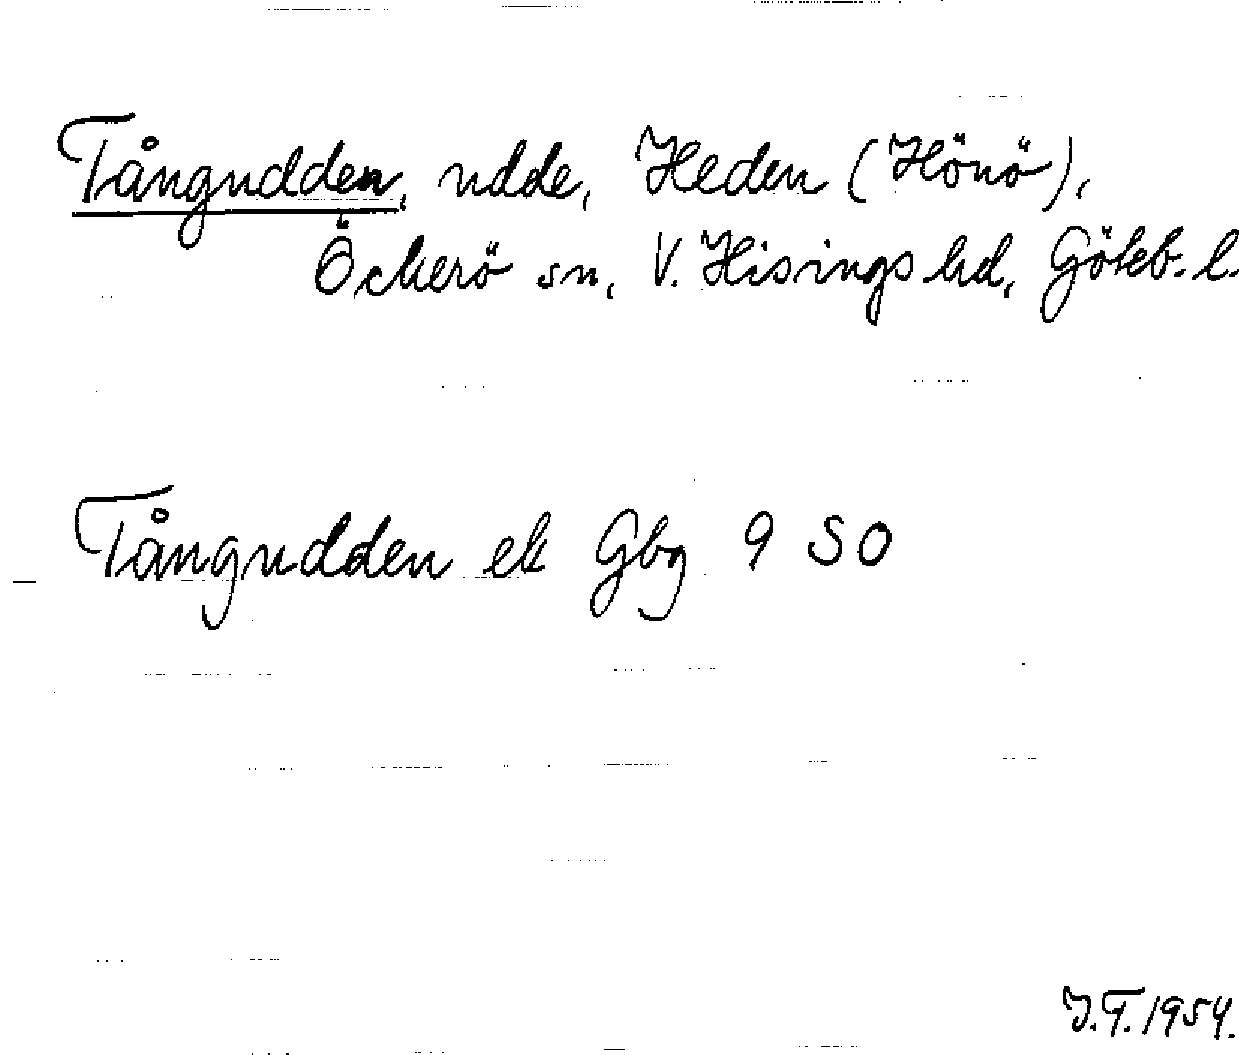 Tångudden, udde, Heden (Hönö),
Öckerö sn, V. Hisings hd, Göteb. l.
Tångudden ek Gbg 9 SO
I.T. 1954.